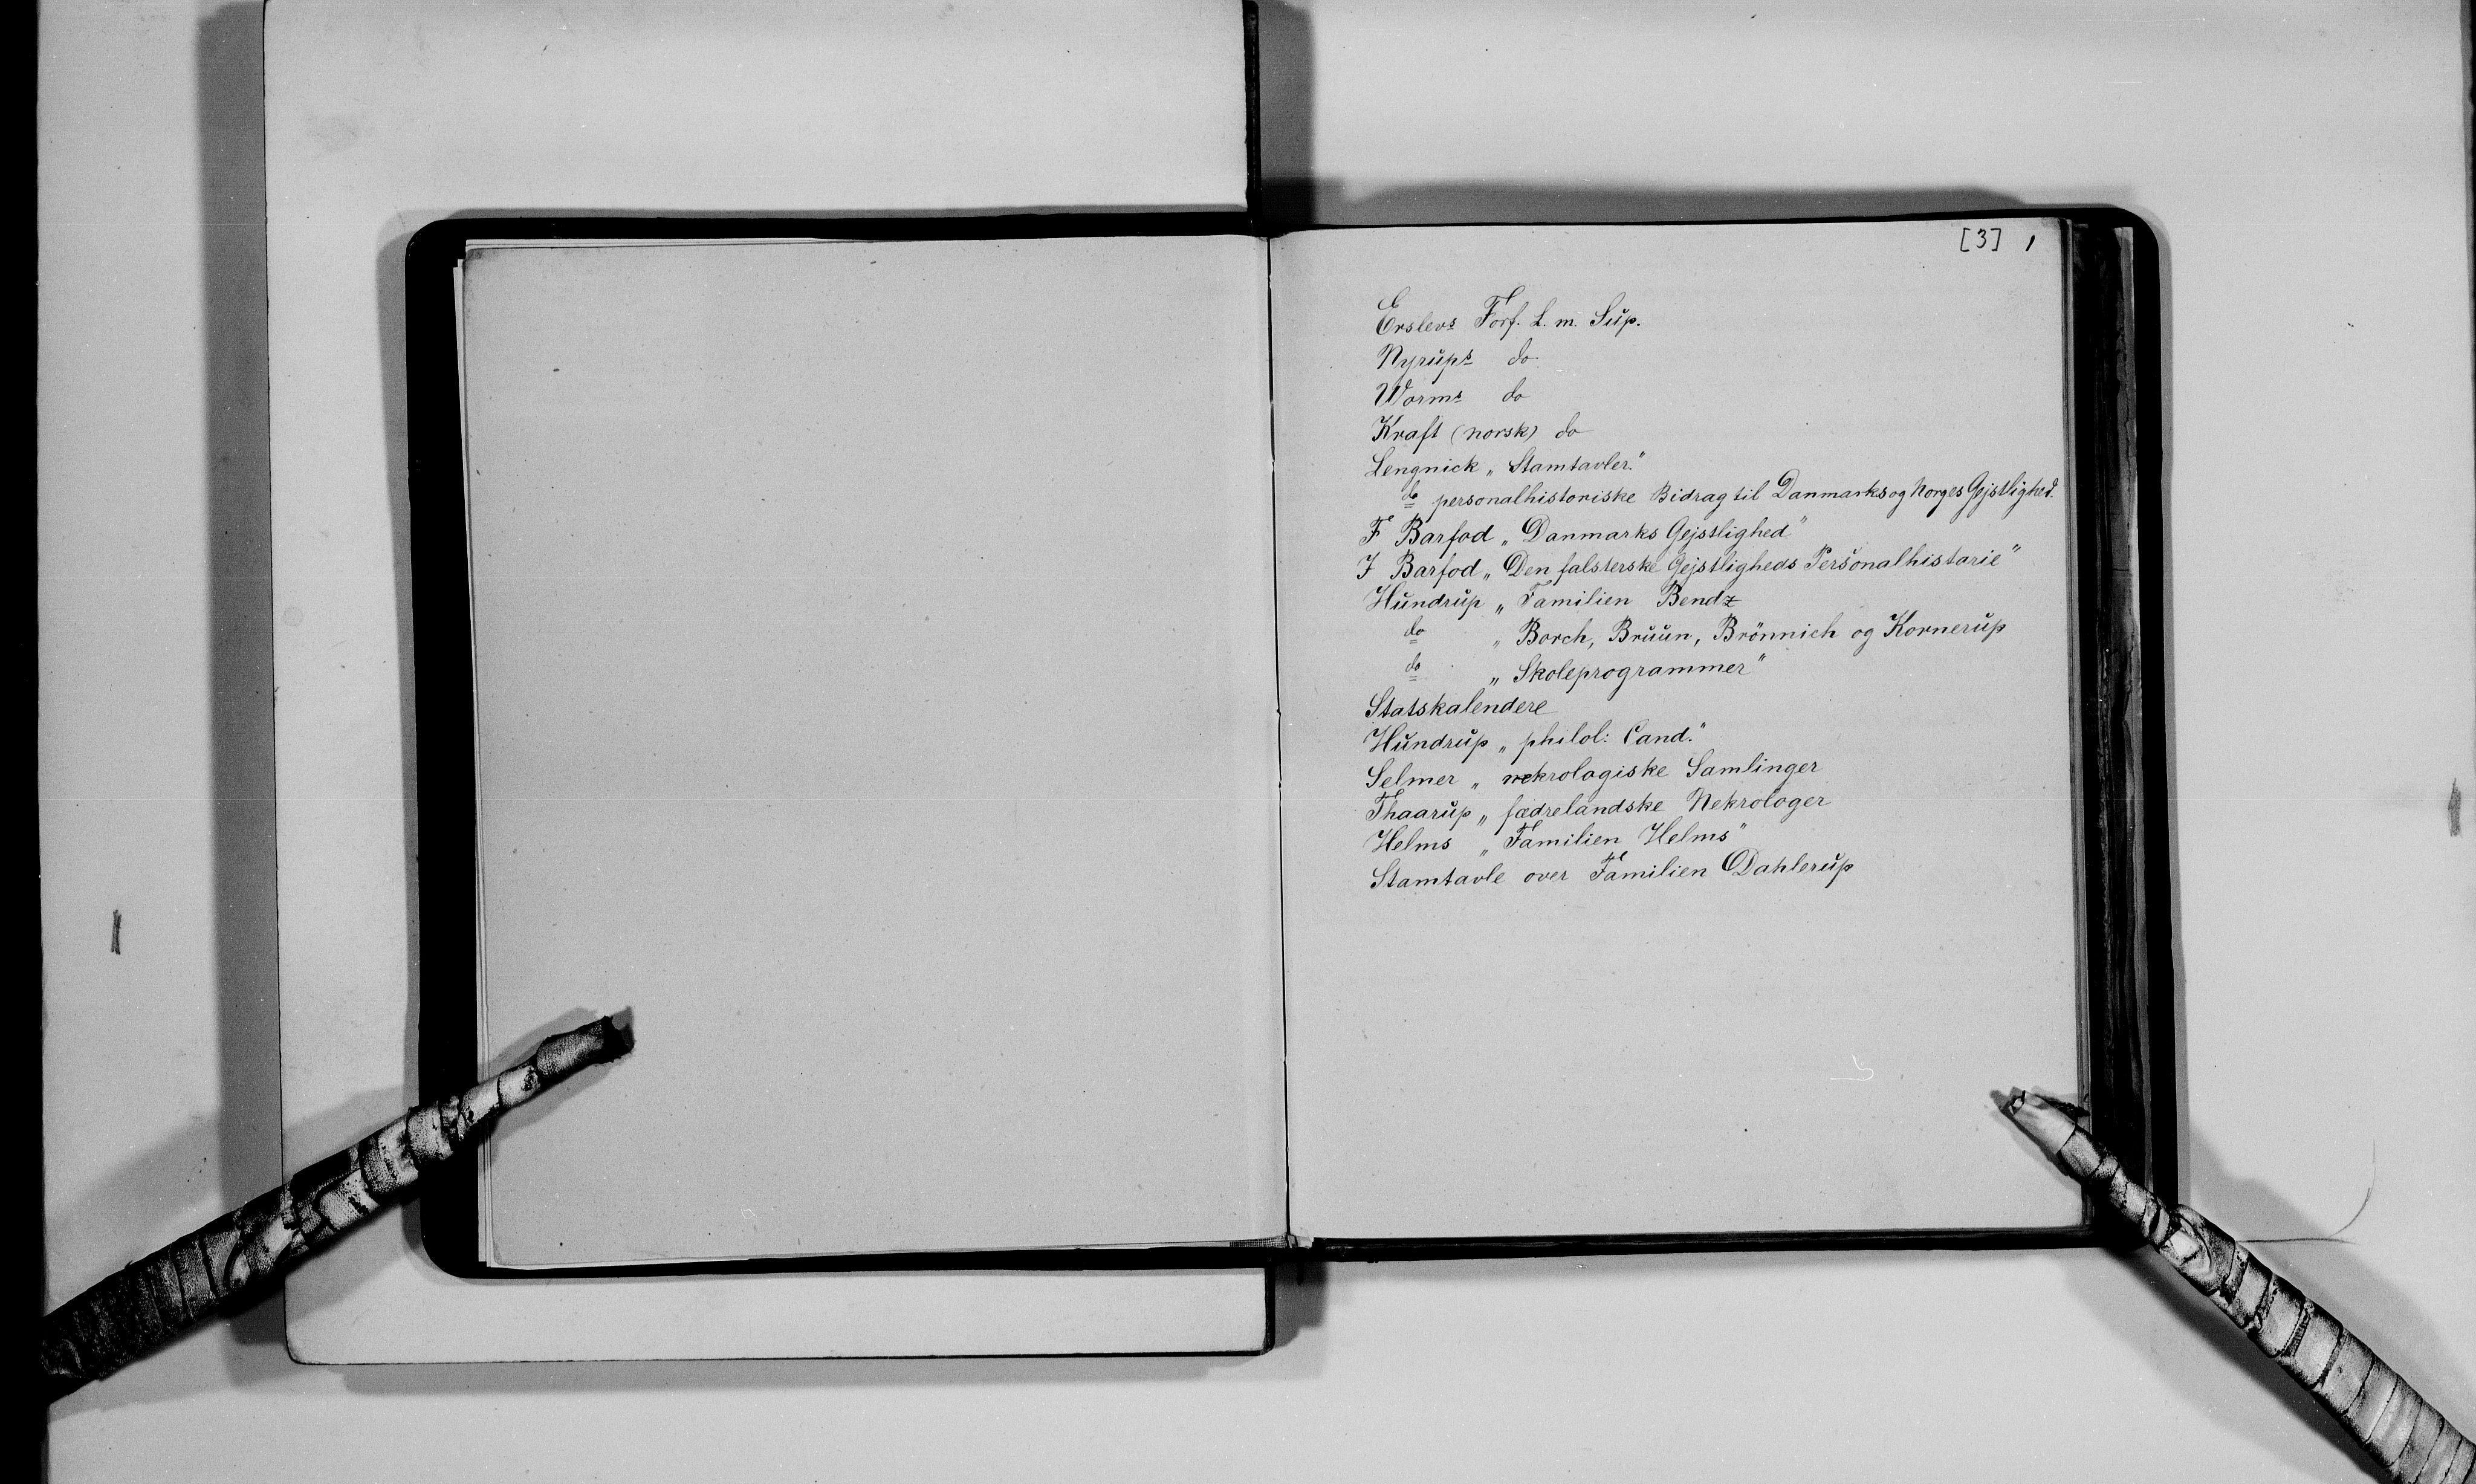 [3] 1
Erslevs Forf. L. m. Sup.
Nyrups do
Worms do
Kraft (norsk) do
Lengnick „Stamtavler."
do personalhistoriske Bidrag til Danmarks og Norges Gejstlighed.
F Barfod „Danmarks Gejstlighed"
J Barfod „Den falsterske Gejstligheds Personalhistorie"
Hundrup „Familien Bendz
do „Borch, Bruun, Brönnich og Kornerup
do „Skoleprogrammer"
Statskalendere
Hundrup „philol: Cand."
Selmer „nekrologiske Samlinger
Thaarup „fædrelandske Nekrologer
Helms „Familien Helms"
Stamtavle over Familien Dahlerup